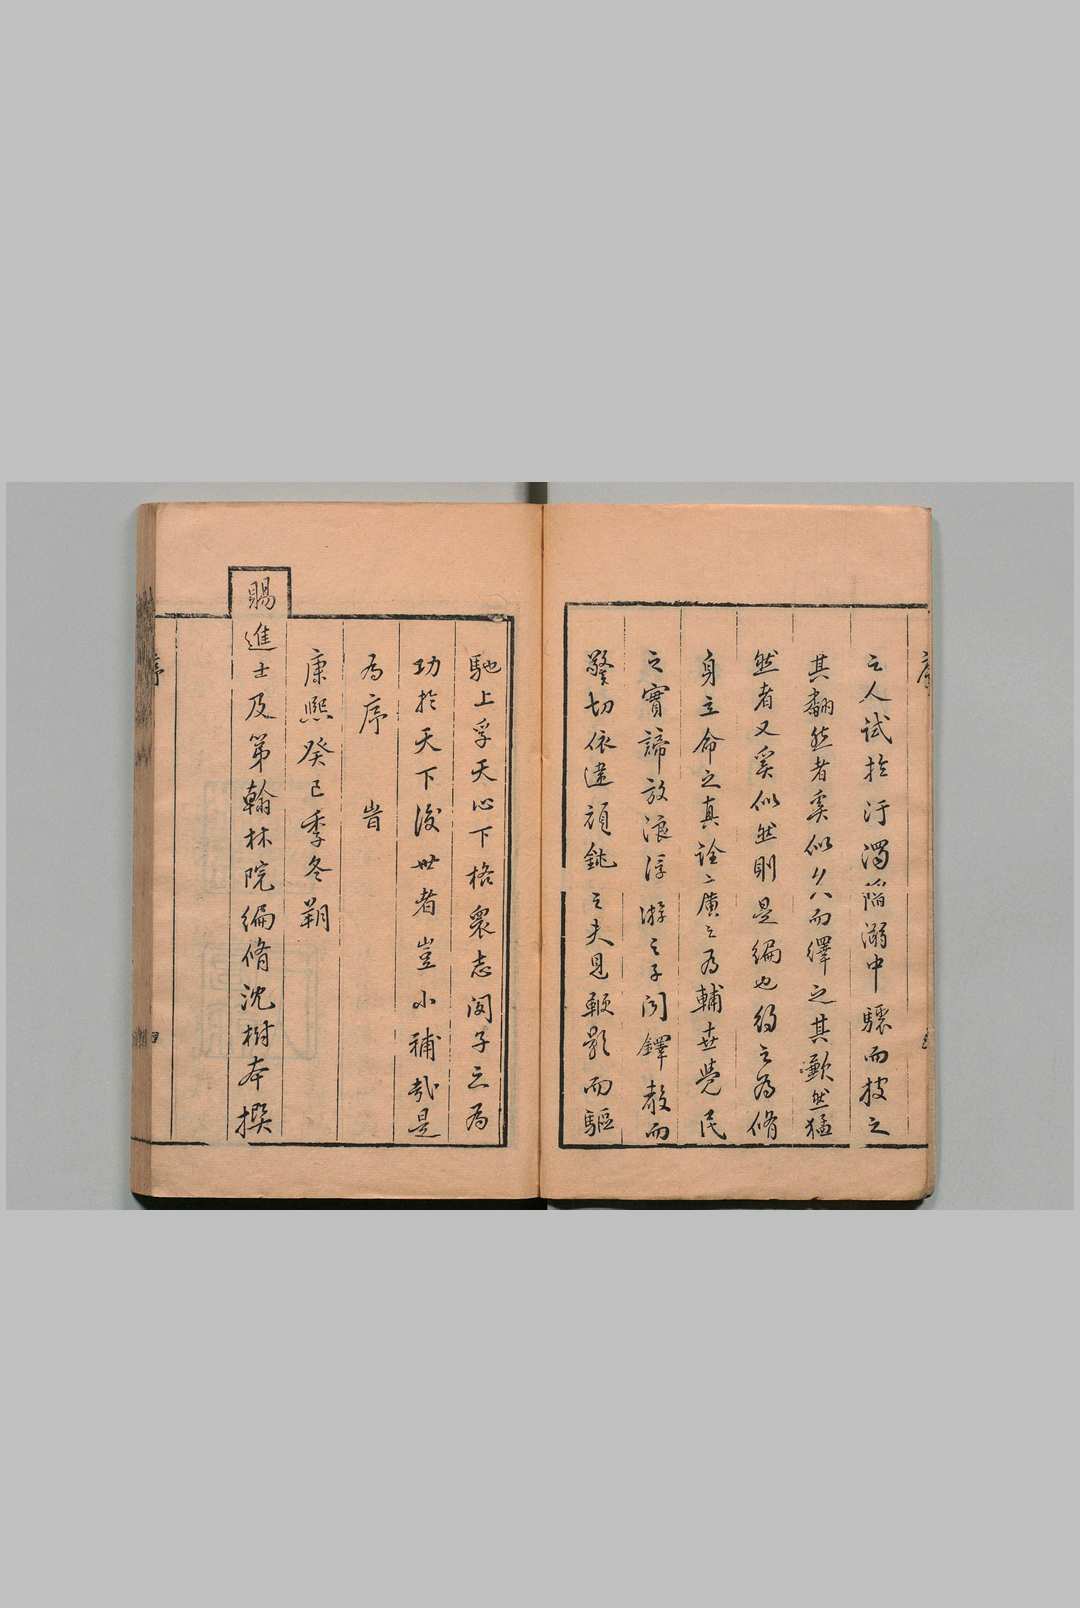 序
之人試於汙濁蹈溺中驤而披之
其翻然者奚似久而繹之其歉然猛
然者又奚似然則是編也約之為脩
身立命之真詮二廣之為輔世覺民
之寶諦放浪浮游之子聞鐸教而
警切依違頑鈍之夫見鞭影而驅
馳上孚天心下格衆志闵子之為
功於天下後世者豈小補哉是
為序 旹
康熙癸巳季冬朔
賜進士及第翰林院編脩沈樹本撰
序